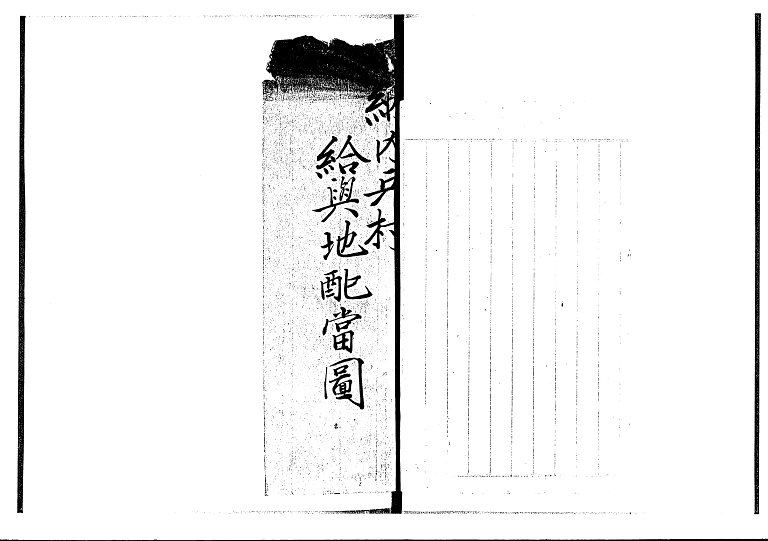 納内兵村
給與地配當圖